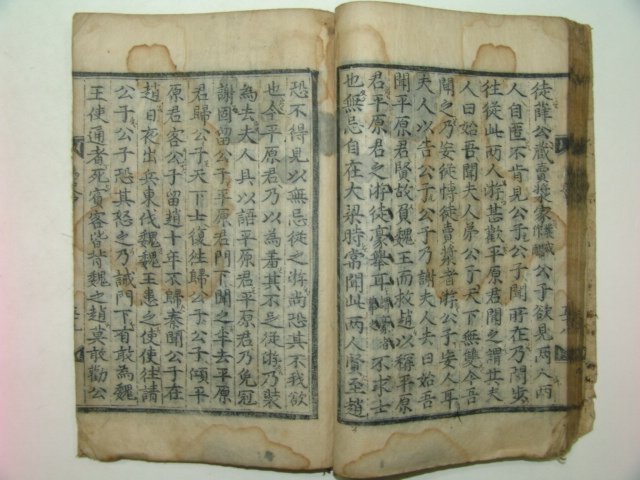 徒薛公藏賣漿家公子欲見兩人兩
人自匿不肯見公子公子聞所在乃間步
往從此兩人游甚歡平原君聞之謂其夫
人曰始吾聞夫人弟公子天下無雙今吾
聞之乃妄從博徒賣漿者游公子妄人耳
夫人以告公子公子乃謝夫人去曰始吾
聞平原君賢故負魏王而救趙以稱平原
君平原君之游徒豪舉耳不求士
也無忌自在大梁時常聞此兩人賢至趙
恐不得見以無忌從之游尚恐其不我欲
也今平原君乃以為羞其不足從游乃裝
為去夫人具以語平原君平原君乃免冠
謝固留公子平原君門下聞之半去平原
君歸公子天下士復往歸公子公子傾平
原君客公子留趙十年不歸秦聞公子在
趙日夜出兵東伐魏魏王患之使使往請
公子公子恐其怒之乃誡門下有敢為魏
王使通者死賓客皆背魏之趙莫敢勸公